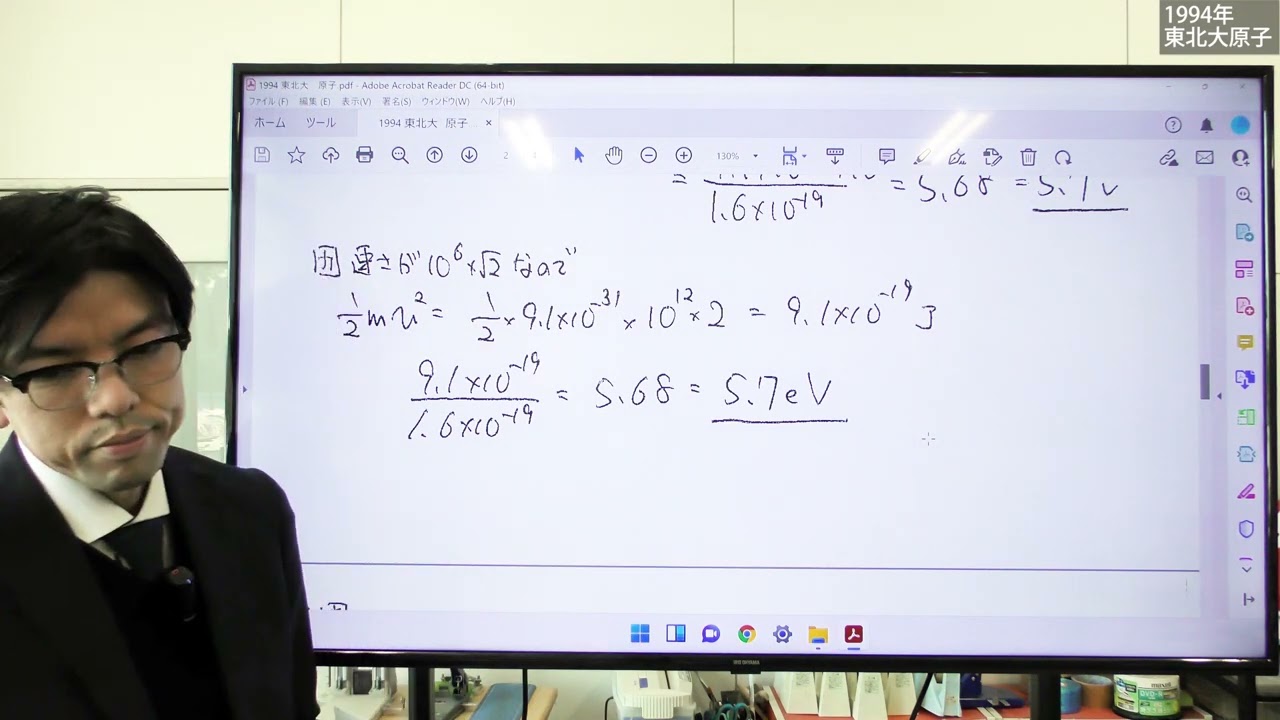 1994年
東北大原子
1994 東北大　原子.pdf - Adobe Acrobat Reader DC (64-bit)
ファイル(F) 編集(E) 表示(V) 署名(S) ウィンドウ(W) ヘルプ(H)
ホーム ツール 1994 東北大 原子... ×
2 130%
= /1.6×10⁻¹⁹ = 5.68 = 5.7V
速さが 10⁶×√2 なので
1/2 mv² = 1/2 × 9.1×10⁻³¹ × 10¹² × 2 = 9.1×10⁻¹⁹ J
9.1×10⁻¹⁹/1.6×10⁻¹⁹ = 5.68 = 5.7eV
IIYAMA
maxell
DVD-R